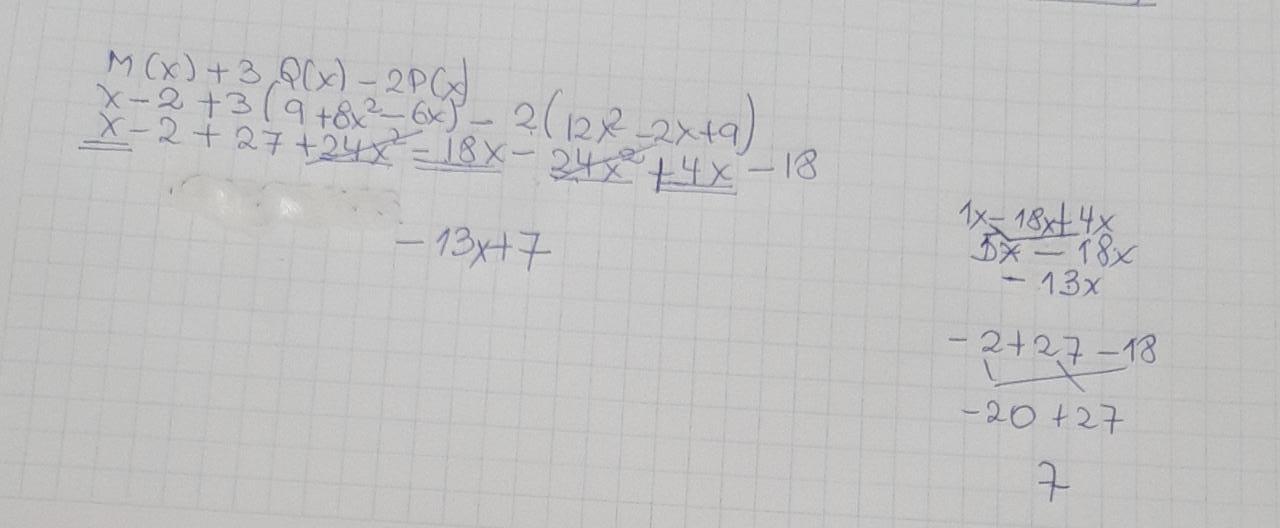 M(x) + 3 Q(x) - 2P(x)
x - 2 + 3 (9 + 8x² - 6x) - 2(12x² - 2x + 9)
x - 2 + 27 + 24x² - 18x - 24x² + 4x - 18
- 13x + 7
1x - 18x + 4x
5x - 18x
- 13x
- 2 + 27 - 18
- 20 + 27
7